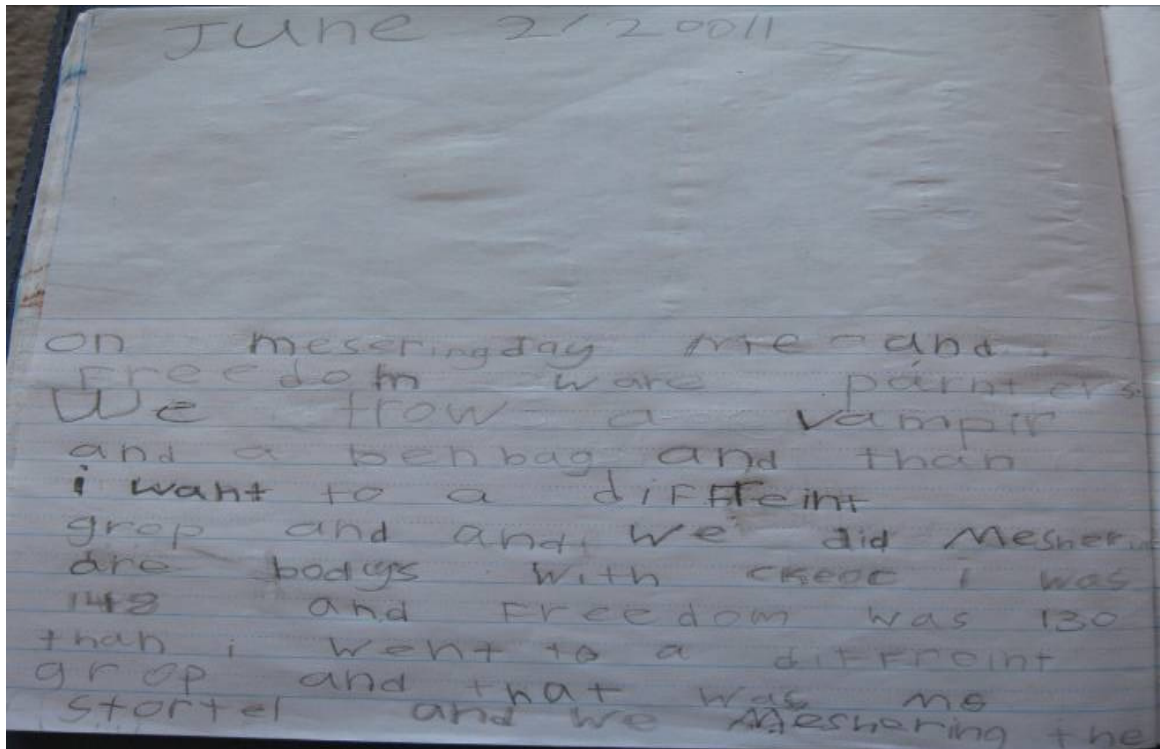 June 2/20011
on meseringday me and
Freedom ware parnters.
We trow a vampir
and a benbag and than
i want to a diffreint
grop and and we did Mesheri
are bodys with i was
148 and Freedom was 130
than i went to a diffreint
grop and that was me
stortel and we Meshering the